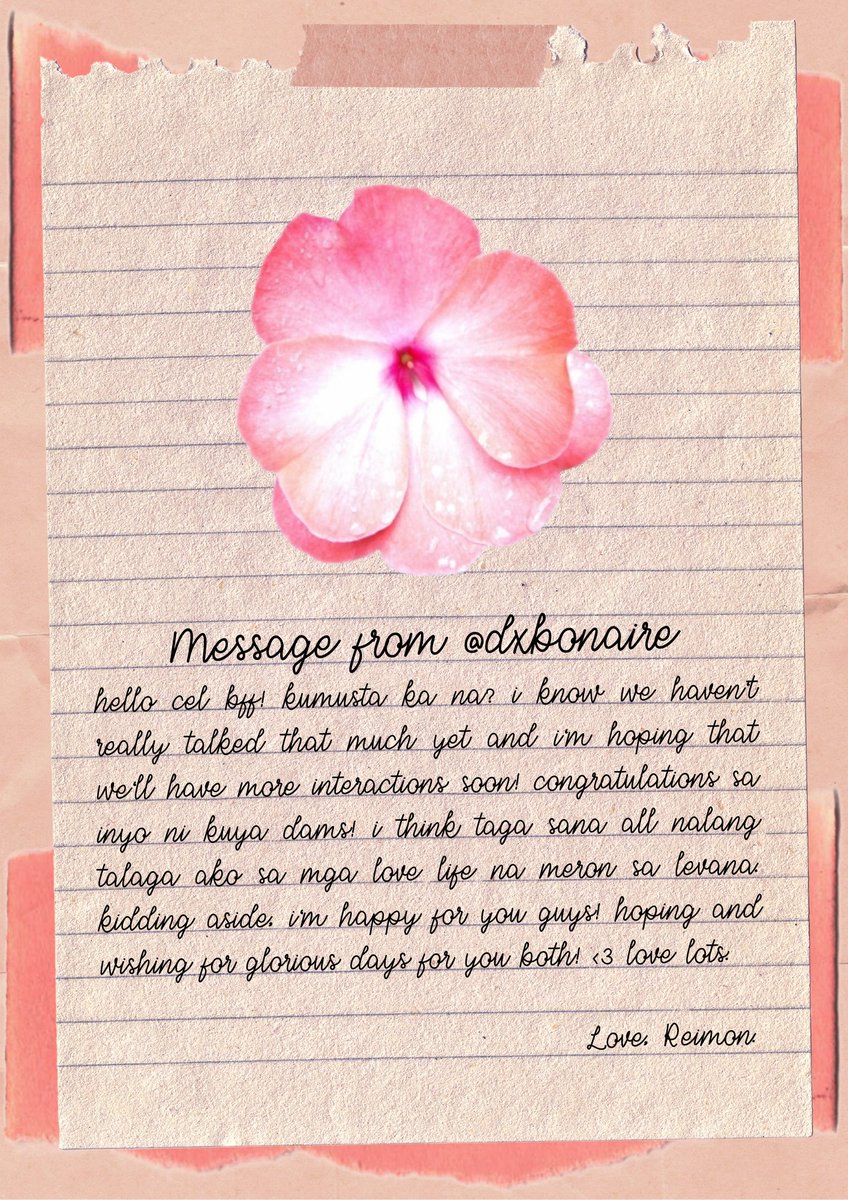 Message from @dxbonaire
hello cel bff! kumusta ka na? i know we haven't
really talked that much yet and i'm hoping that
we'll have more interactions soon! congratulations sa
inyo ni kuya dams! i think taga sana all nalang
talaga ako sa mga love life na meron sa levana.
kidding aside. i'm happy for you guys! hoping and
wishing for glorious days for you both! <3 love lots.
Love. Reimon.